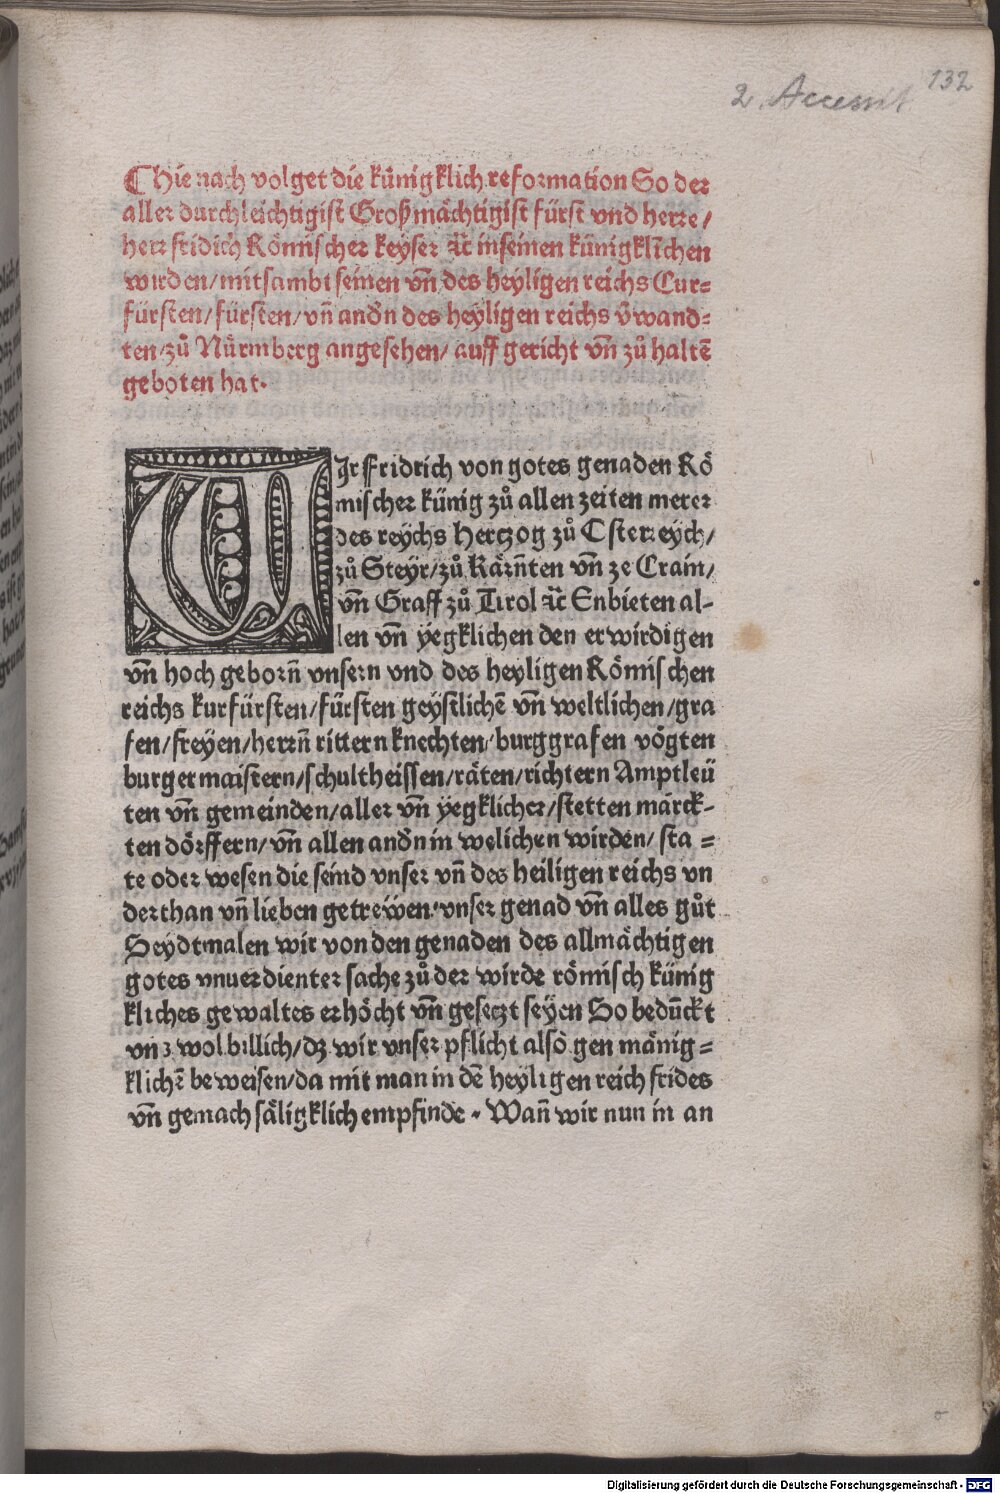 132
2. Accessit
¶ Hie nach volget die künigklich reformation So der
aller durchleichtigist Großmächtigist fürst vnd herre/
herr fridich Römischer keyser ꝛc̃ in seinen künigklichen
wirden/mitsambt seinen vñ des heyligen reichs Cur⸗
fürsten/fürsten/vñ andn̄ des heyligen reichs v̄wand⸗
ten/zů Nürmberg angesehen/auff gericht vñ zů haltē
geboten hat.
WIr Fridrich von gotes genaden Rö
mischer künig zů allen zeiten merer
des reychs Hertzog zů Osterreych/
zů Steyr/zů Kärñten vñ ze Crain/
vñ Graff zů Tirol ꝛc̃ Enbieten al⸗
len vñ yegklichen den erwirdigen
vñ hoch geborñ vnsern vnd des heyligen Römischen
reichs kurfürsten/fürsten geystlichē vñ weltlichen/gra
fen/freyen/herrñ rittern knechten/burggrafen vögten
burgermaistern/schultheissen/räten/richtern Amptleü
ten vñ gemeinden/aller vñ yegklicher/stetten märck⸗
ten dörffern/vñ allen andn̄ in welichen wirden/sta⸗
te oder wesen die seind vnser vñ des heiligen reichs vn
derthan vñ lieben getrewen/vnser genad vñ alles gůt
Seydtmalen wir von den genaden des allmächtigen
gotes vnuerdienter sache zů der wirde römisch künig
kliches gewaltes erhöcht vñ gesetzt seyen So bedückt
vnȝ wol billich/dȝ wir vnser pflicht also gen mänig⸗
klichē beweisen/da mit man in dē heyligen reich frides
vñ gemach säligklich empfinde. Wañ wir nun in an
Digitalisierung gefördert durch die Deutsche Forschungsgemeinschaft - DFG